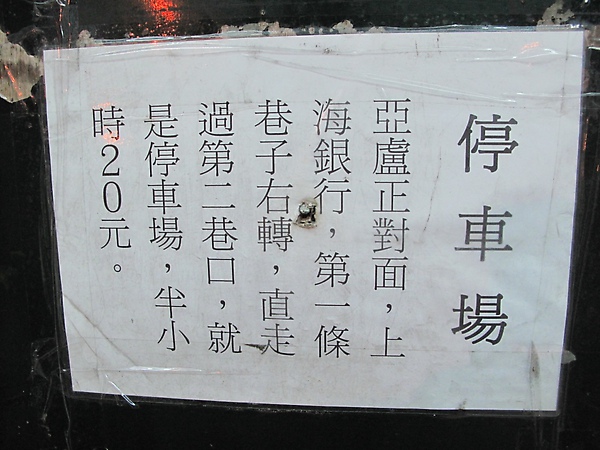 停車場
亞盧正對面，上
海銀行，第一條
巷子右轉，直走
過第二巷口，就
是停車場，半小
時20元。